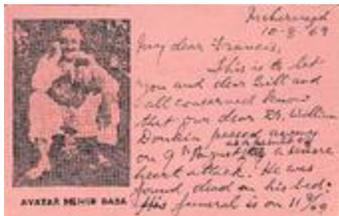 10-8 69
My dear Francis,
This is to let
you and dear Bill and
all concerned know
that our dear Dr. William
Donkin passed away
as a result of
on 9th August a severe
heart attack. He was
found dead on his bed:
His funeral is on 11/8/69
AVATAR MEHER BABA